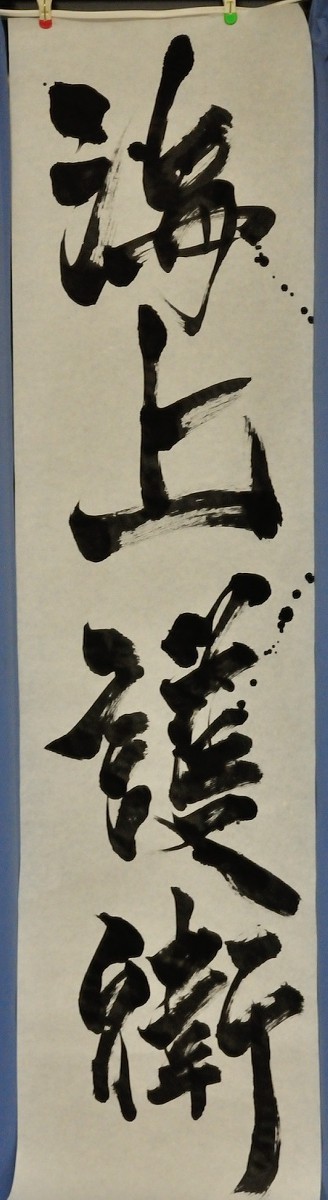 海上護衛